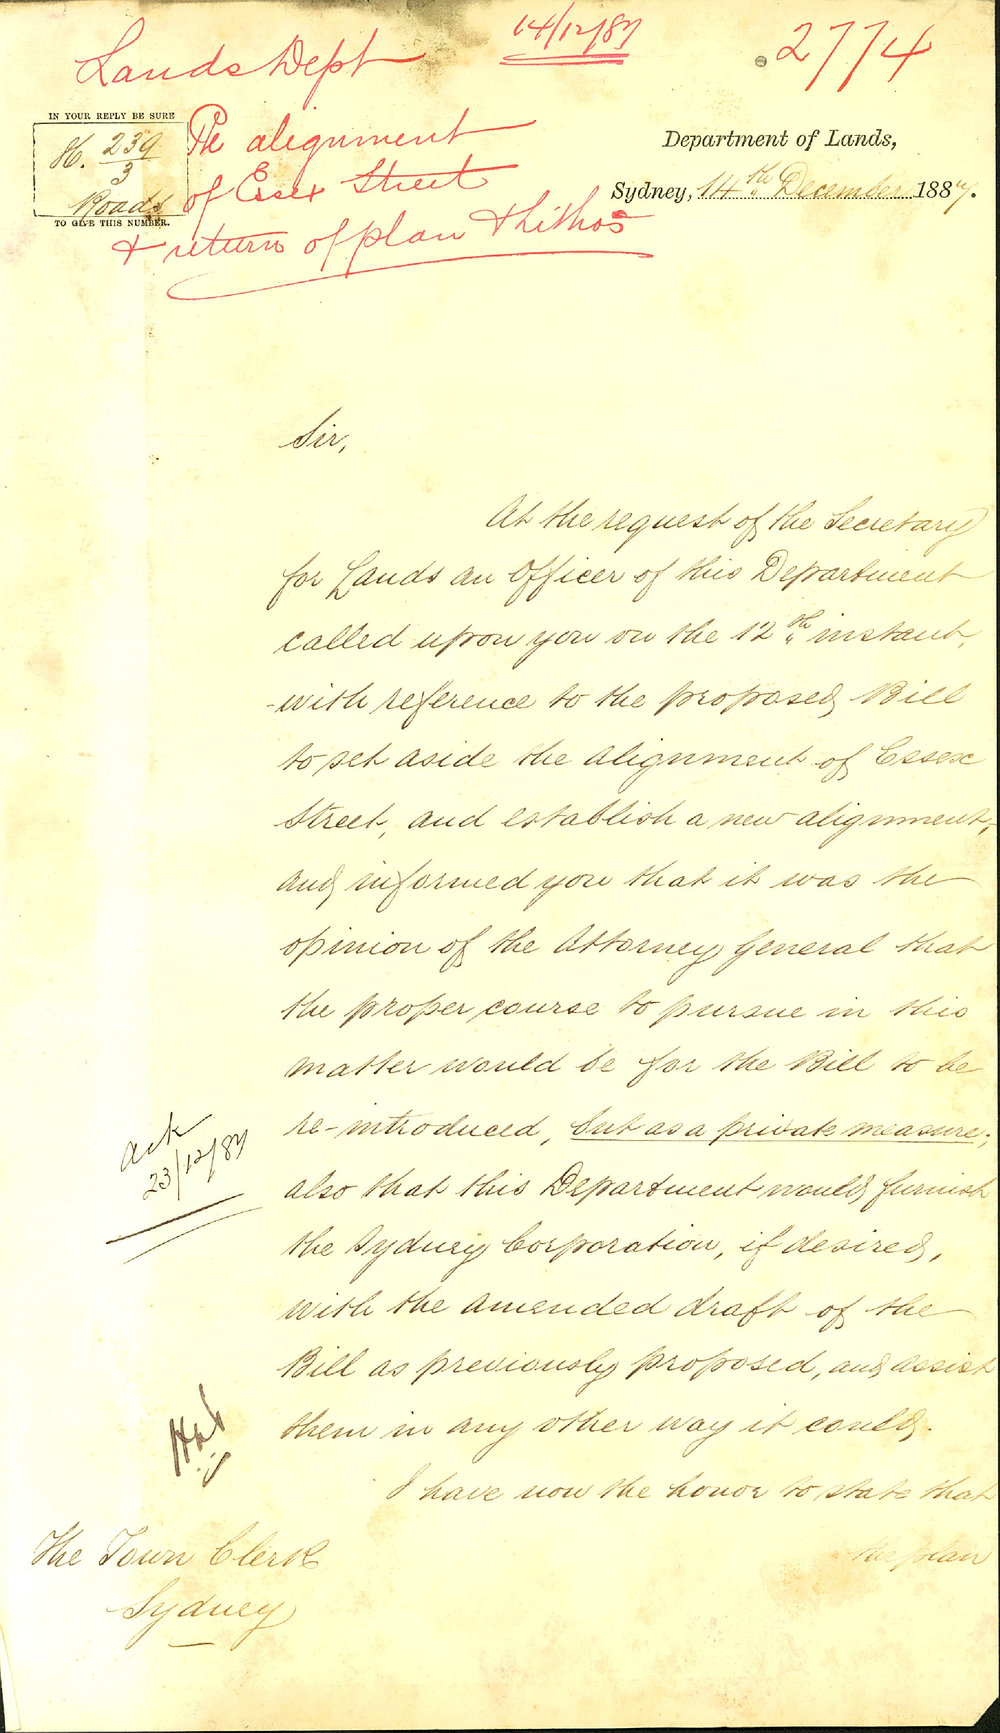 Lands Dept
14/12/87
2774
IN YOUR REPLY BE SURE
H. 239
3
Roads
TO GIVE THIS NUMBER.
Re alignment
of Essex Street
& return of plan & Lithos
Department of Lands,
Sydney, 14th December 1887.
Sir,
At the request of the Secretary
for Lands an Officer of this Department
called upon you on the 12th instant,
with reference to the proposed Bill
to set aside the alignment of Essex
Street, and establish a new alignment,
and informed you that it was the
opinion of the Attorney General that
the proper course to pursue in this
matter would be for the Bill to be
re-introduced, but as a private measure;
also that this Department would furnish
the Sydney Corporation, if desired,
with the amended draft of the
Bill as previously proposed, and assist
them in any other way it could.
I have now the honor to state that
the plan
Ack
23/12/87
The Town Clerk
Sydney